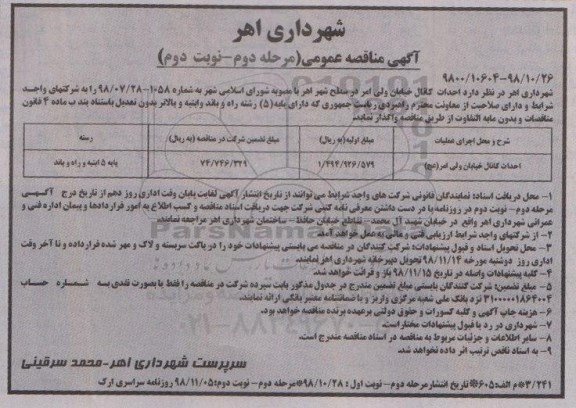 شهرداری اهر
آگهی مناقصه عمومی(مرحله دوم-نوبت دوم)
۹۸۰۰/۱۰۶۰۴-۹۸/۱۰/۲۶
شهرداری اهر در نظر دارد احداث کانال خیابان ولی امر در سطح شهر اهر با مصوبه شورای اسلامی شهر به شماره ۱۰۵۸-۹۸/۰۷/۲۸ را به شرکتهای واجد
شرایط و دارای صلاحیت از معاونت محترم راهبردی ریاست جمهوری که دارای پایه(۵) رشته راه و باند وابنیه و بالاتر بدون تعدیل باستناد بند ب ماده ۴ قانون
مناقصات و بدون مابه التفاوت از طریق مناقصه واگذار نماید.
شرح و محل اجرای عملیات	مبلغ اولیه(به ریال)	مبلغ تضمین شرکت در مناقصه (به ریال)	رسته
احداث کانال خیابان ولی امر(عج)	۱/۴۹۴/۹۲۶/۵۷۹	۷۴/۷۴۶/۳۲۹	پایه ۵ ابنیه و راه و باند
۱- محل دریافت اسناد: نمایندگان قانونی شرکت های واجد شرایط می توانند از تاریخ انتشار آگهی لغایت پایان وقت اداری روز دهم از تاریخ درج آگهی
مرحله دوم- نوبت دوم در روزنامه با در دست داشتن معرفی نامه کتبی شرکت جهت دریافت اسناد مناقصه و کسب اطلاع به امور قراردادها و پیمان اداره فنی و
عمرانی شهرداری اهر واقع در خیابان شهید آل محمد- تقاطع خیابان حافظ- ساختمان شهرداری اهر مراجعه نمایند.
۲- از شرکتهای واجد شرایط ارزیابی فنی و مالی به عمل خواهد آمد.
۳- محل تحویل اسناد و قبول پیشنهادات: شرکت کنندگان در مناقصه می بایستی پیشنهادات خود را در پاکت سربسته و لاک و مهر شده قرارداده و تا آخر وقت
اداری روز دوشنبه مورخه ۹۸/۱۱/۱۴ تحویل دبیرخانه شهرداری اهر نمایند.
۴- کلیه پیشنهادات واصله در تاریخ ۹۸/۱۱/۱۵ باز و قرائت خواهد شد.
۵- مبلغ تضمین: شرکت کنندگان بایستی مبلغ تضمین مندرج در جدول مذکور بابت سپرده شرکت در مناقصه را فقط با بصورت نقدی به شماره حساب
۳۱۰۰۰۰۱۸۶۴۰۰۴ نزد بانک ملی شعبه مرکزی واریز و یا ضمانتنامه معتبر بانکی ارائه نمایند.
۶- هزینه چاپ آگهی و کلیه کسورات و حقوق دولتی برعهده برنده مناقصه خواهد بود.
۷- شهرداری در رد یا قبول پیشنهادات مختار است.
۸- سایر اطلاعات و جزئیات مربوط به مناقصه در اسناد مناقصه مندرج است.
۹- به اسناد ناقص ترتیب اثر داده نخواهد شد.
سرپرست شهرداری اهر-محمد سرقینی
۳/۲۴۱ م الف:۶۰۵ تاریخ انتشار مرحله دوم- نوبت اول: ۹۸/۱۰/۲۸ مرحله دوم- نوبت دوم:۹۸/۱۱/۰۵ روزنامه سراسری ارک
ParsNamad
۰۲۱-۸۸۳۴۹۶۷۰-۵